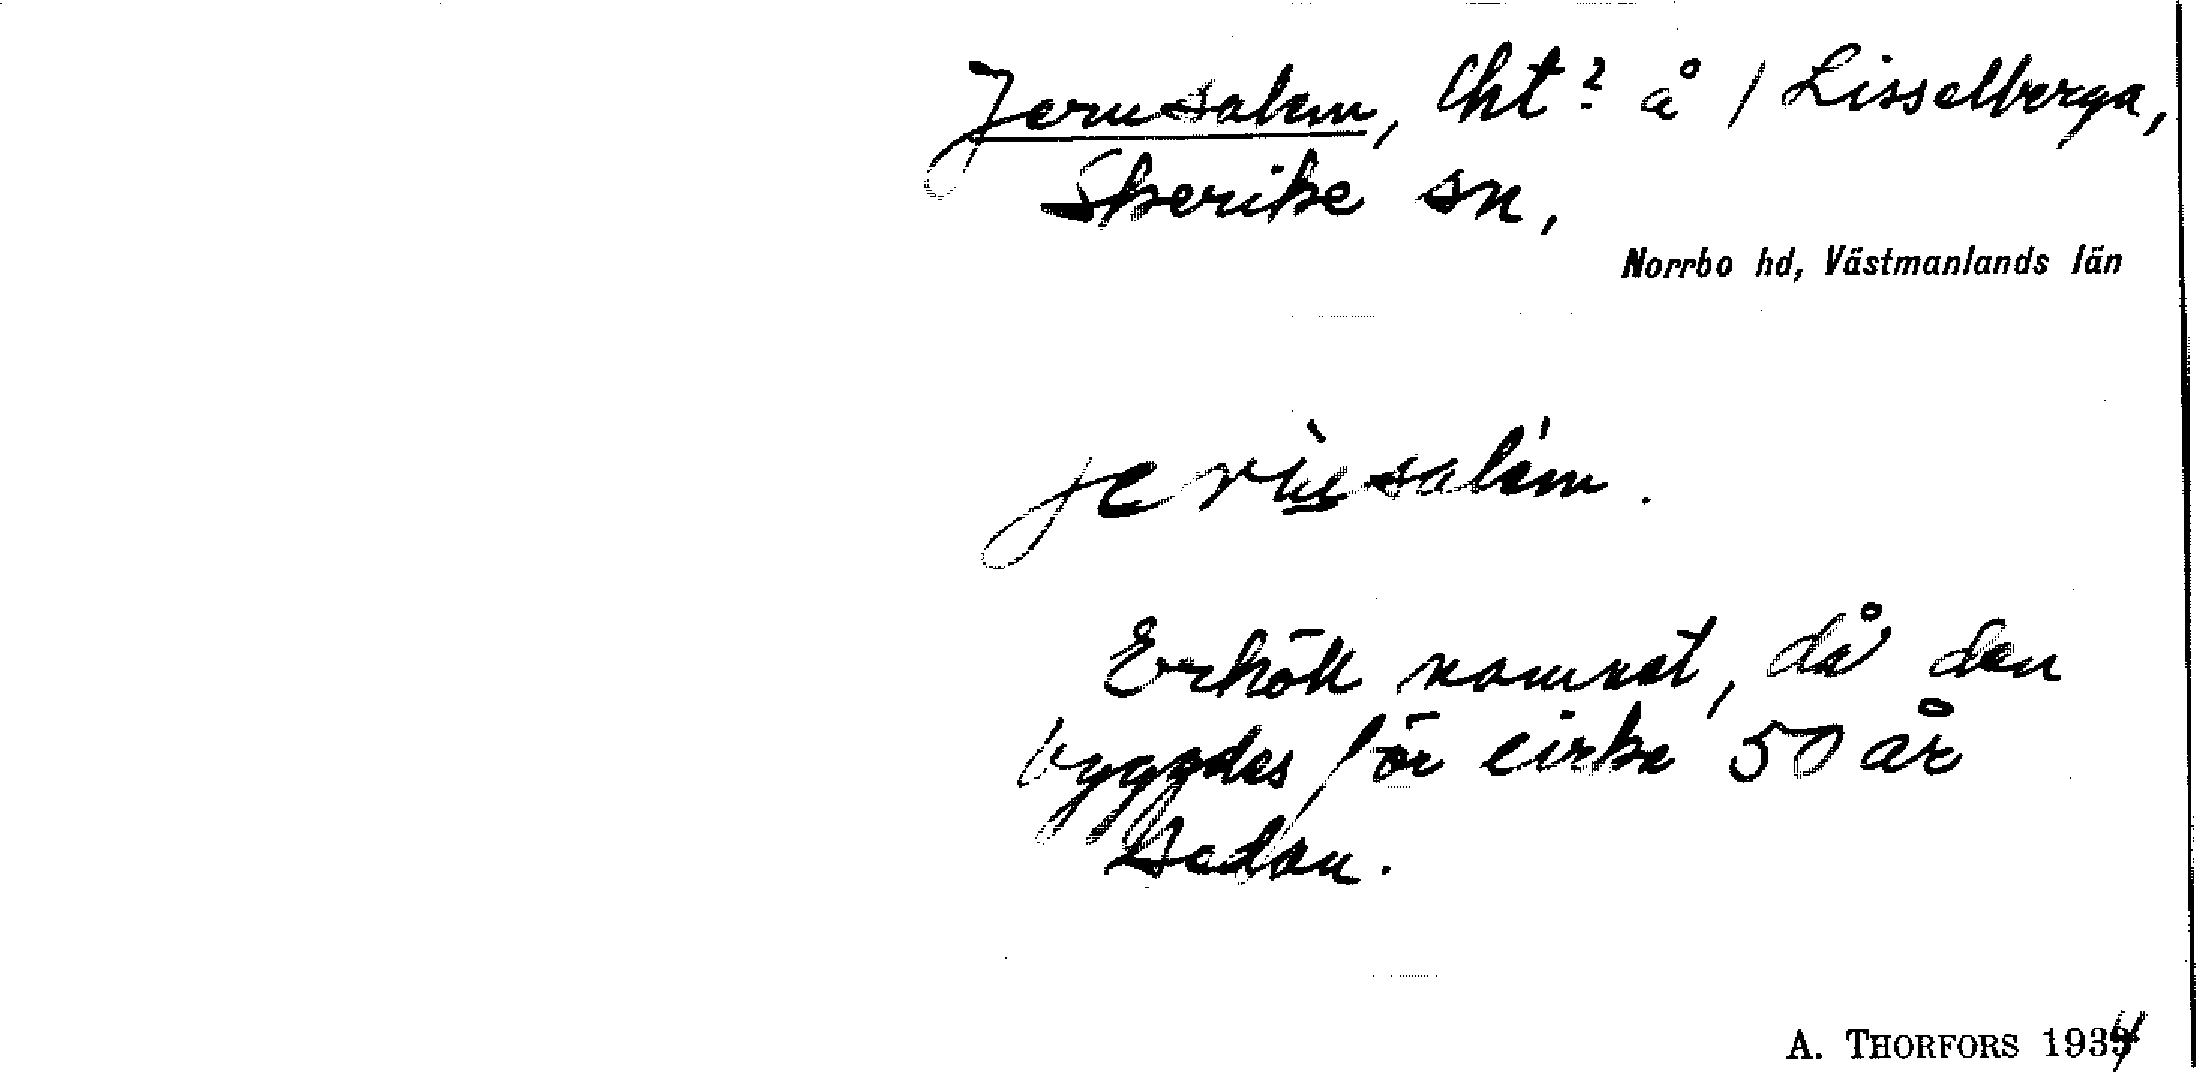 Jerusalem, lht? å / Lisselberga,
Skerike sn,
Norrbo hd, Västmanlands län
jerùsalém.
Erhöll namnet, då den
byggdes för cirka 50 år
sedan.
A. THORFORS 1934